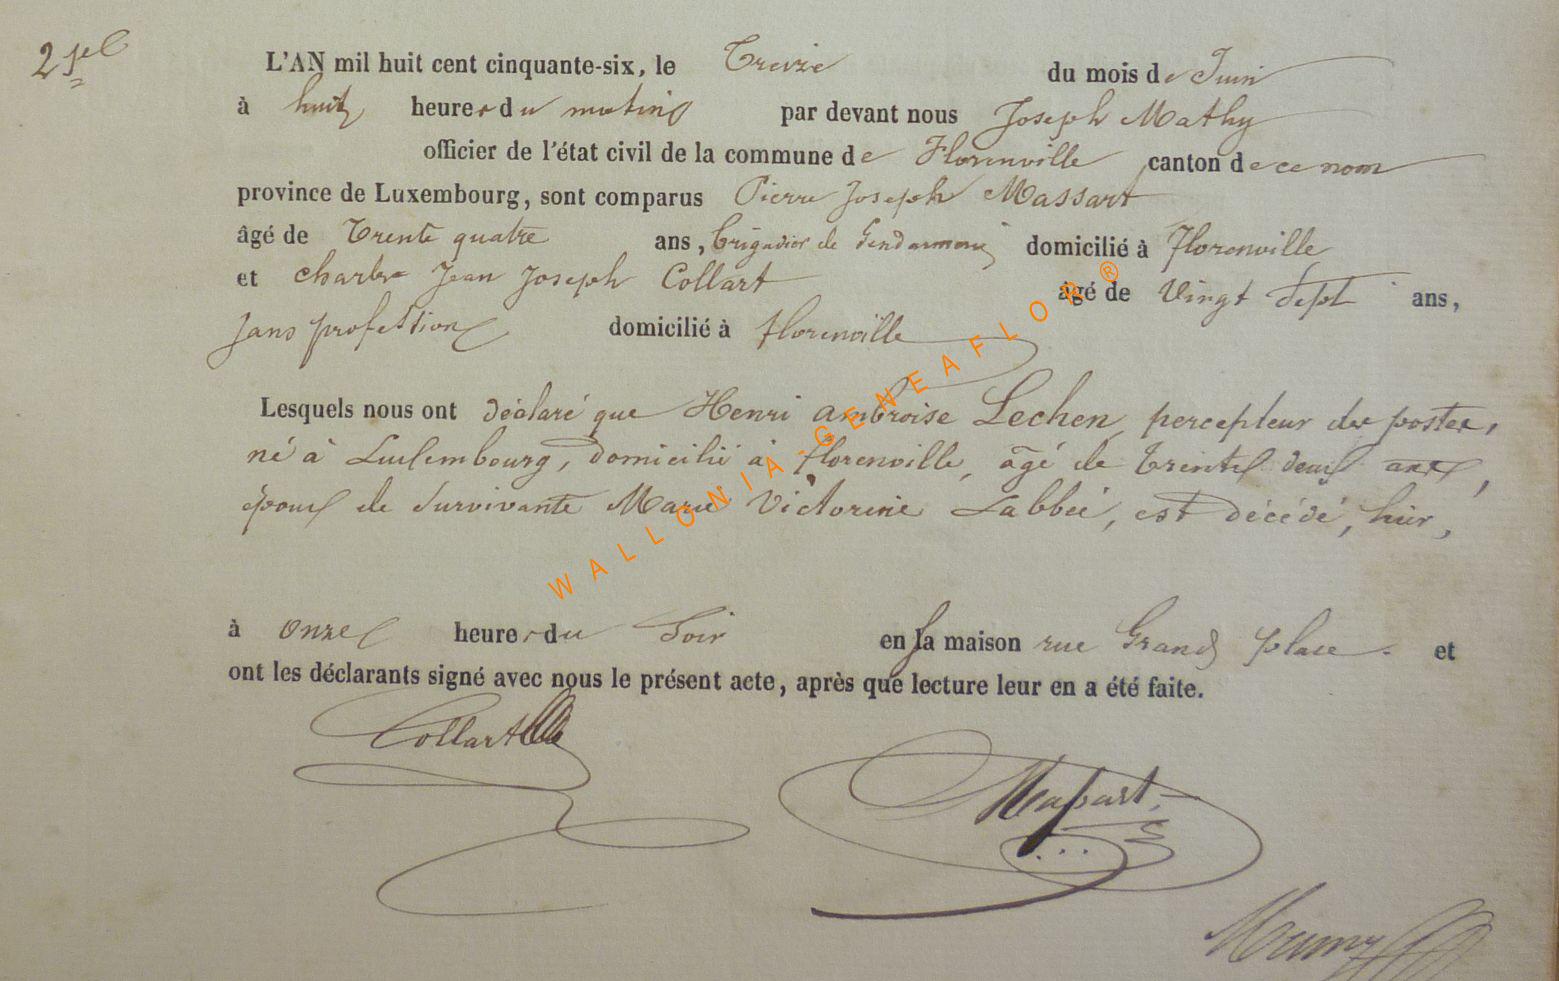 L'AN mil huit cent cinquante-six, le Treize du mois de Juin
à huit heures du matin par devant nous Joseph Mathy
officier de l'état civil de la commune de Florenville canton de ce nom
province de Luxembourg, sont comparus Pierre Joseph Massart
âgé de Trente quatre ans, brigadier de Gendarmerie domicilié à Florenville
et Charles Jean Joseph Collart âgé de Vingt Sept ans,
sans profession domicilié à florenville
Lesquels nous ont déclaré que Henri ambroise Lechen, percepteur des postes,
né à Luxembourg, domicilié à florenville, âgé de trente deux ans,
époux de Survivante Marie Victorine Labbée, est décédé, hier,
à onze heures du Soir en sa maison rue Grand place. et
ont les déclarants signé avec nous le présent acte, après que lecture leur en a été faite.
Collart
Massart
WALLONIA-GENEAFLOR ®